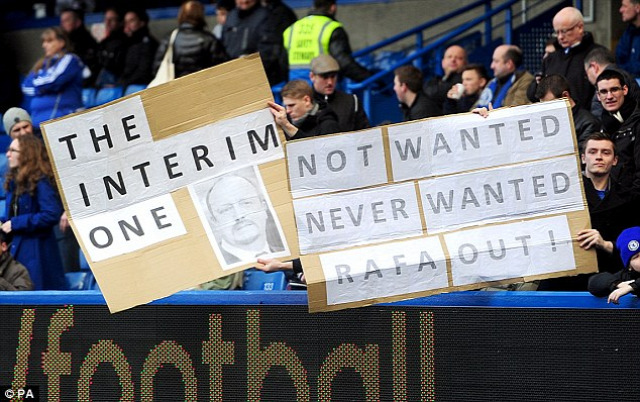 THE
INTERIM
ONE
NOT WANTED
NEVER WANTED
RAFA OUT!
/football
© PA